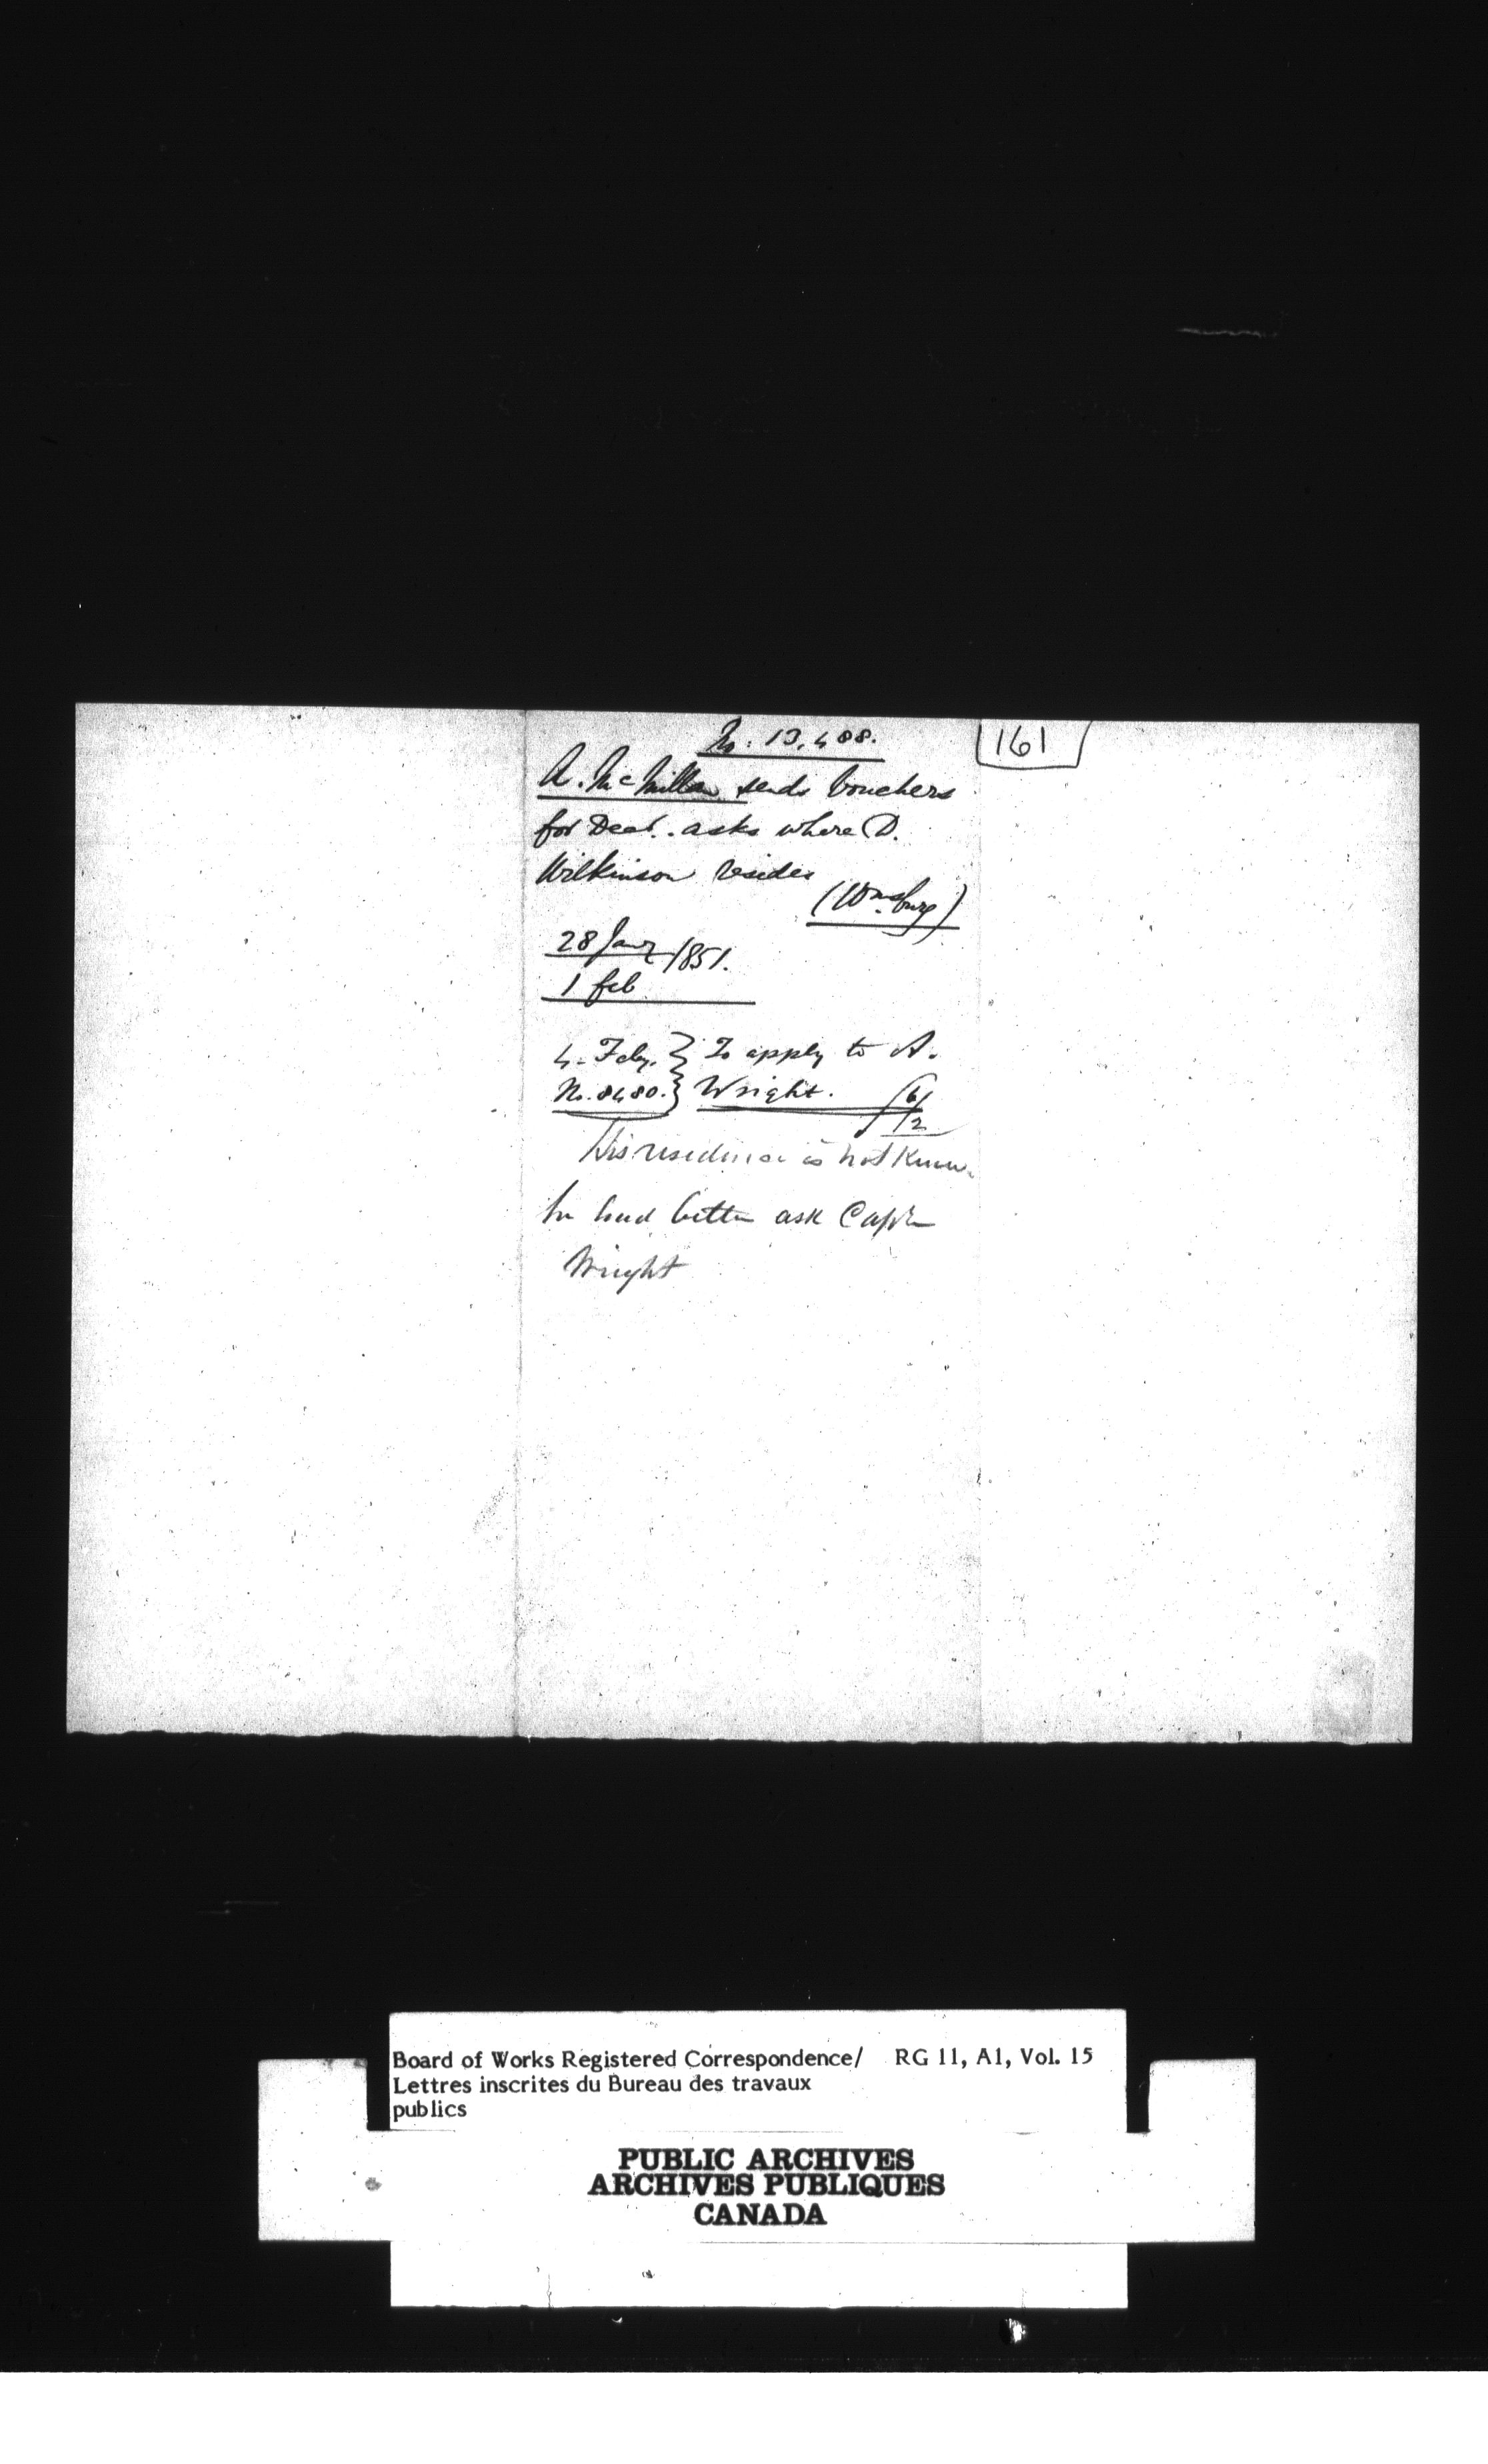 No: 13,488.
161
A. McMillan sends vouchers
for Decr. asks where D.
Wilkinson resides
(Wmsburg)
28 Jany 1851.
1 feb
4. Feby. } To apply to A.
No. 8480. } Wright. 6/2
His residence is not known
he had better ask Captn
Wright
Board of Works Registered Correspondence/ RG 11, A1, Vol. 15
Lettres inscrites du Bureau des travaux
publics
PUBLIC ARCHIVES
ARCHIVES PUBLIQUES
CANADA